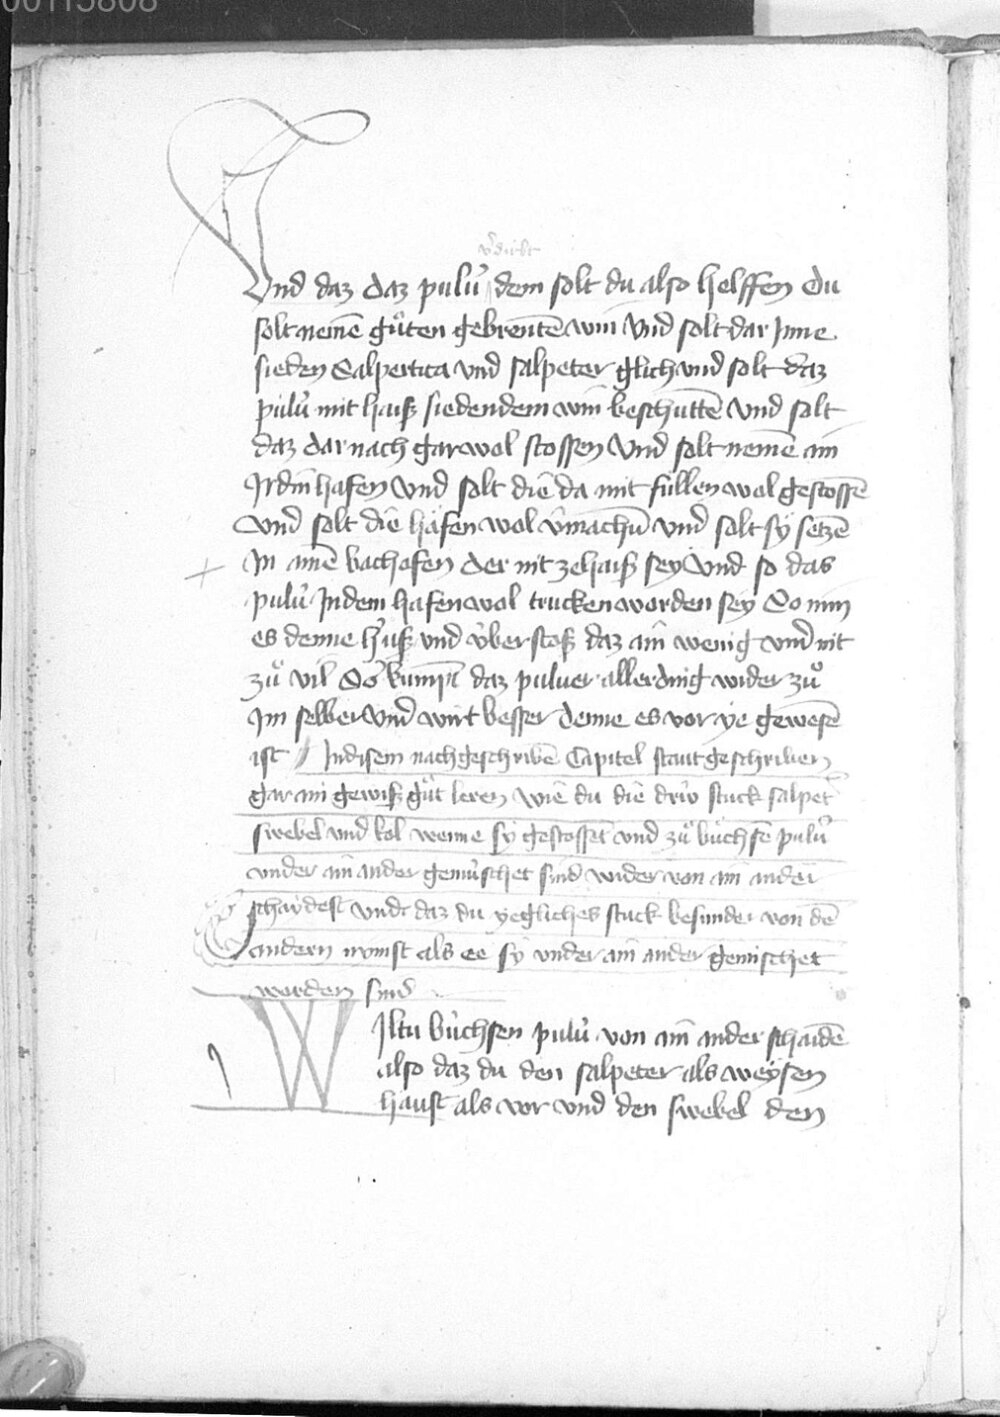 00113808
v̓dirbt
Vnd daz daz pulu̓ dem solt du also helffen Du
solt nemē gůten gebrentē win Vnd solt dar Jnne
sieden Salpertica vnd salpeter glich vnd solt daz
pulu̓ mit haiß siedendem win beschuttē Vnd solt
daz dar nach gar wol stossen Vnd solt nemē ain
Jrdin hafen Vnd solt die da mit fullen wol gestossē
Vnd solt die häfen wol v̓machn̄ vnd solt sy setzē
Jn ainē bachofen der nit ze haiß sey Vnd so das
pulu̓ Jn dem hafen wol trucken worden sey So nim
es denne h̓uß vnd v̈berstoß daz ain wenig vnd nit
zů vil So kumpt daz puluer aller ding wider zů
Jm selber Vnd wirt besser denne es vor ye gewesē
ist Jn disem nachgeschribē Capitel staut geschriben
gar ain gewiß gůt leren wie du die driv stuck salpet̓
swebel vnd kol wenne sy gestossen vnd zů buchsē pulu̓
vnder ain ander gemu̓schet sind wider von ain ander
schaydest vnd daz du yegliches stuck besunder von dē
andern nymst als ee sy vnder ain ander gemischet
worden sind
WJltu bu̓chsen pulu̓ von ain ander schaidē
also daz du den salpeter als weysen
haust als vor vnd den swebel den